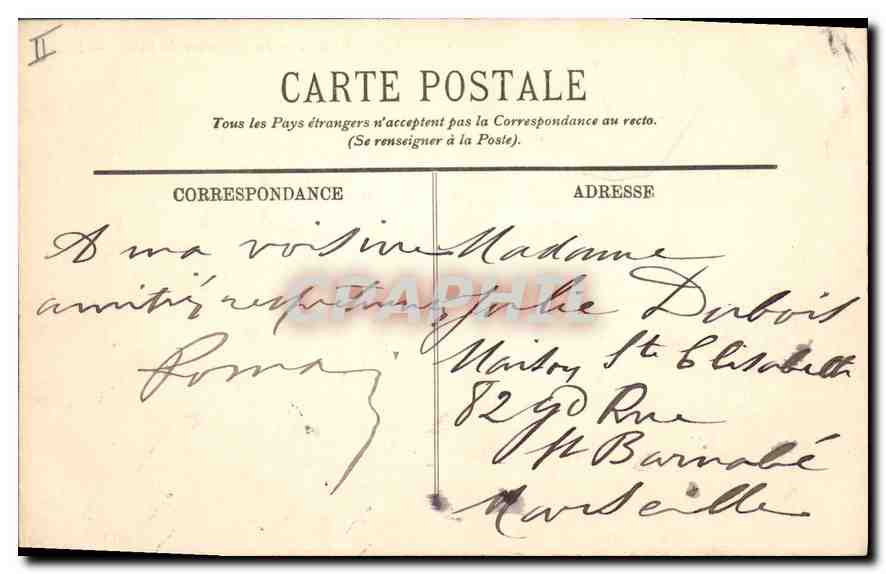 II
CARTE POSTALE
Tous les Pays étrangers n'acceptent pas la Correspondance au recto.
(Se renseigner à la Poste).
CORRESPONDANCE
A ma voisine
amitiés respectueuses
Romain
ADRESSE
Madame
Julie Dubois
Maison Ste Elisabeth
82 gd Rue
St Barnabé
Marseille
CPAPHIL